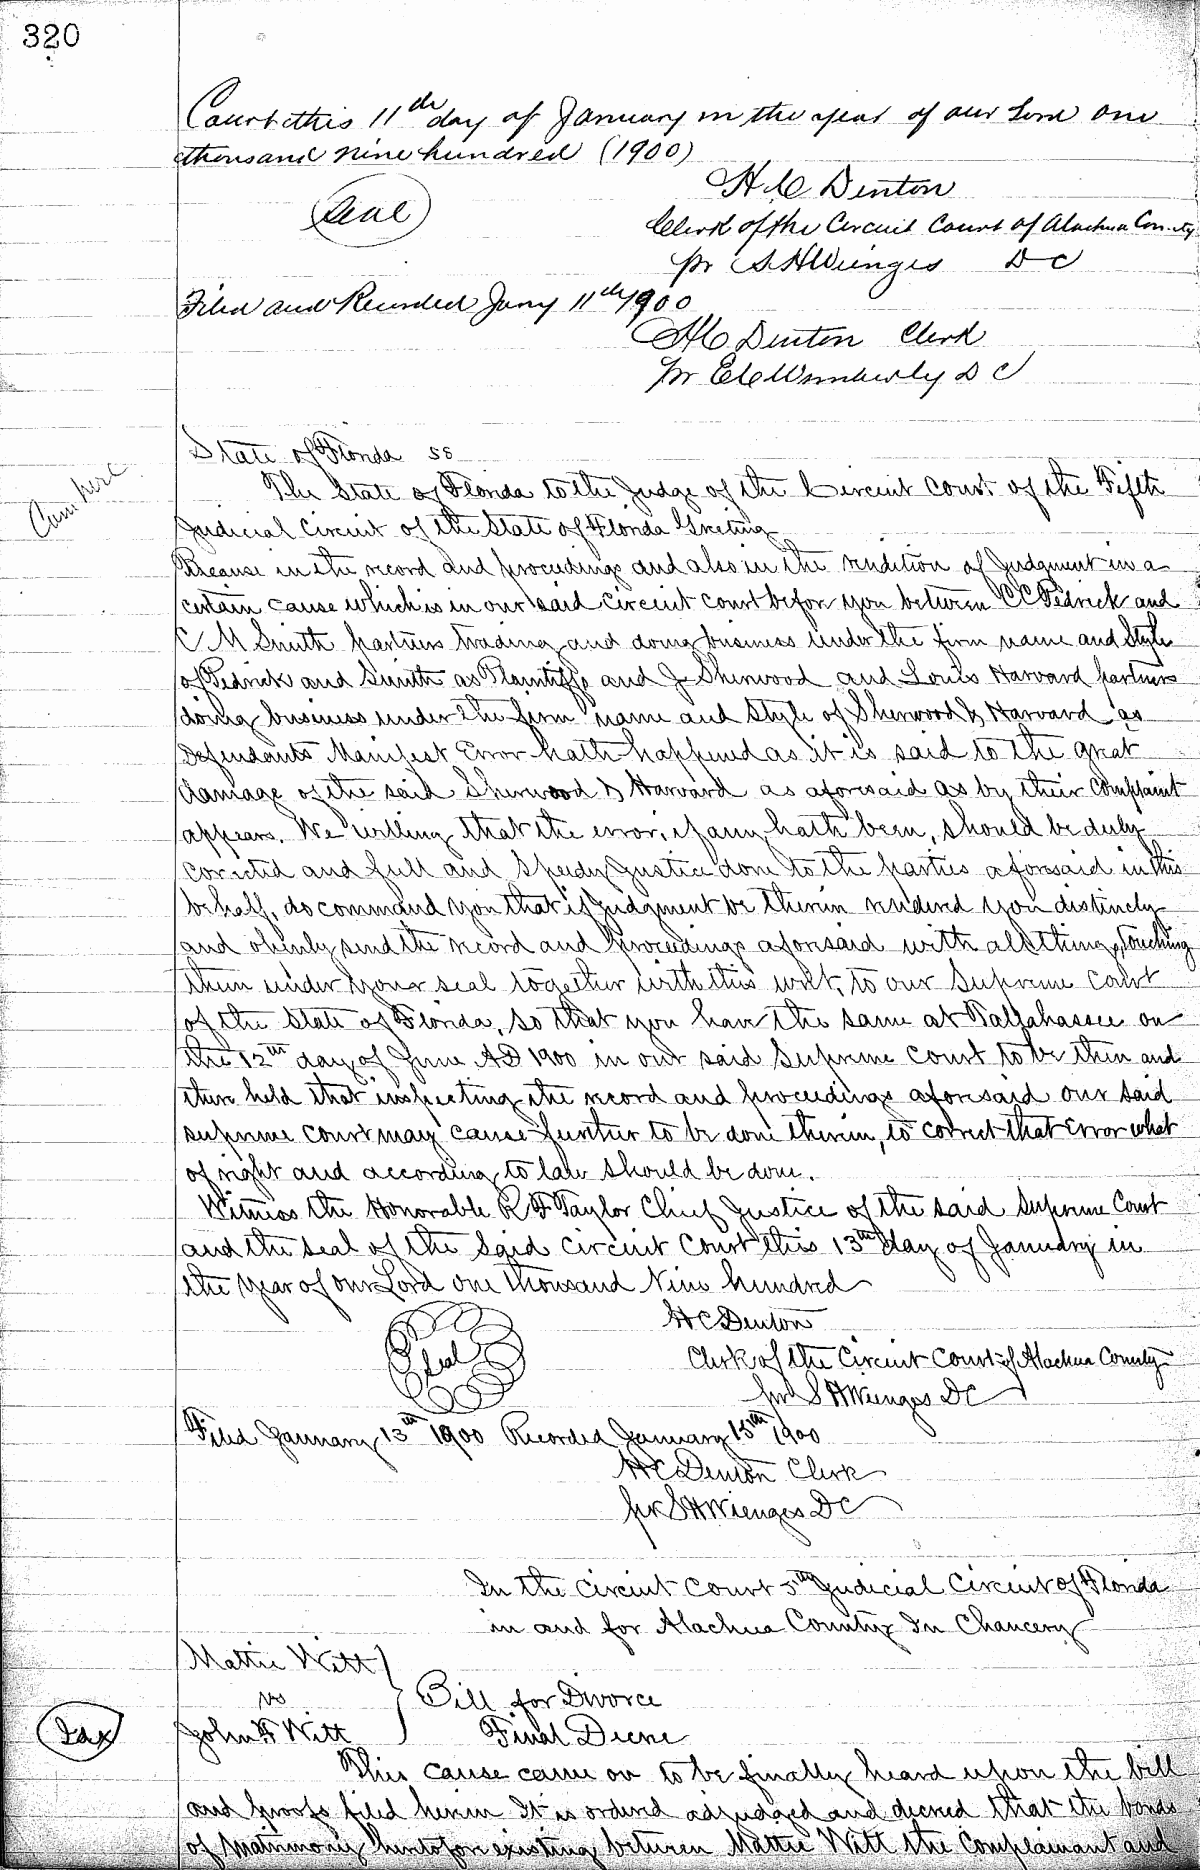 320
Court this 11th day of January in the year of our Lord one
thousand nine hundred (1900)
H C Denton
Seal
Clerk of the Circuit Court of Alachua County
pr S H Wienges D C
Filed and Recorded Jany 11th 1900
H C Denton Clerk
pr E C Wimberly D C
State of Florida ss
The State of Florida to the Judge of the Circuit Court of the Fifth
Judicial Circuit of the State of Florida Greeting
Because in the record and proceedings and also in the rendition of Judgment in a
certain cause which is in our said circuit court before you between C C Pedrick and
C M Smith partners trading and doing business under the firm name and Style
of Pedrick and Smith as Plaintiffs and J Sherwood and Louis Harvard partners
doing business under the firm name and Style of Sherwood & Harvard as
Defendants Manifest Error hath happened as it is said to the great
damage of the said Sherwood & Harvard as aforesaid as by their Complaint
appears. We willing that the error, if any hath been, should be duly
corrected and full and Speedy Justice done to the parties aforesaid in this
behalf, do command you that if Judgment be therein rendered you distinctly
and openly send the record and proceedings aforesaid with all things touching
them under your seal together with this writ, to our Supreme Court
of the State of Florida, so that you have the same at Tallahassee on
the 12th day of June AD 1900 in our said Supreme Court to be then and
there held that inspecting the record and proceedings aforesaid our said
supreme court may cause further to be done therein, to correct that Error what
of right and according to law should be done.
Witness the Honorable R F Taylor Chief Justice of the said Supreme Court
and the seal of the said Circuit Court this 13th day of January in
the year of our Lord one thousand Nine hundred
H C Denton
Seal
Clerk of the Circuit Court of Alachua County
pr S H Wienges D C
Filed January 13th 1900 Recorded January 15th 1900
H C Denton Clerk
pr S H Wienges D C
In the Circuit Court 5th Judicial Circuit of Florida
in and for Alachua County In Chancery
Mattie Witt
vs
Bill for Divorce
John F Witt
Final Decree
This cause came on to be finally heard upon the bill
and proofs filed herein It is ordered adjudged and decreed that the bonds
of matrimony heretofore existing between Mattie Witt the Complainant and